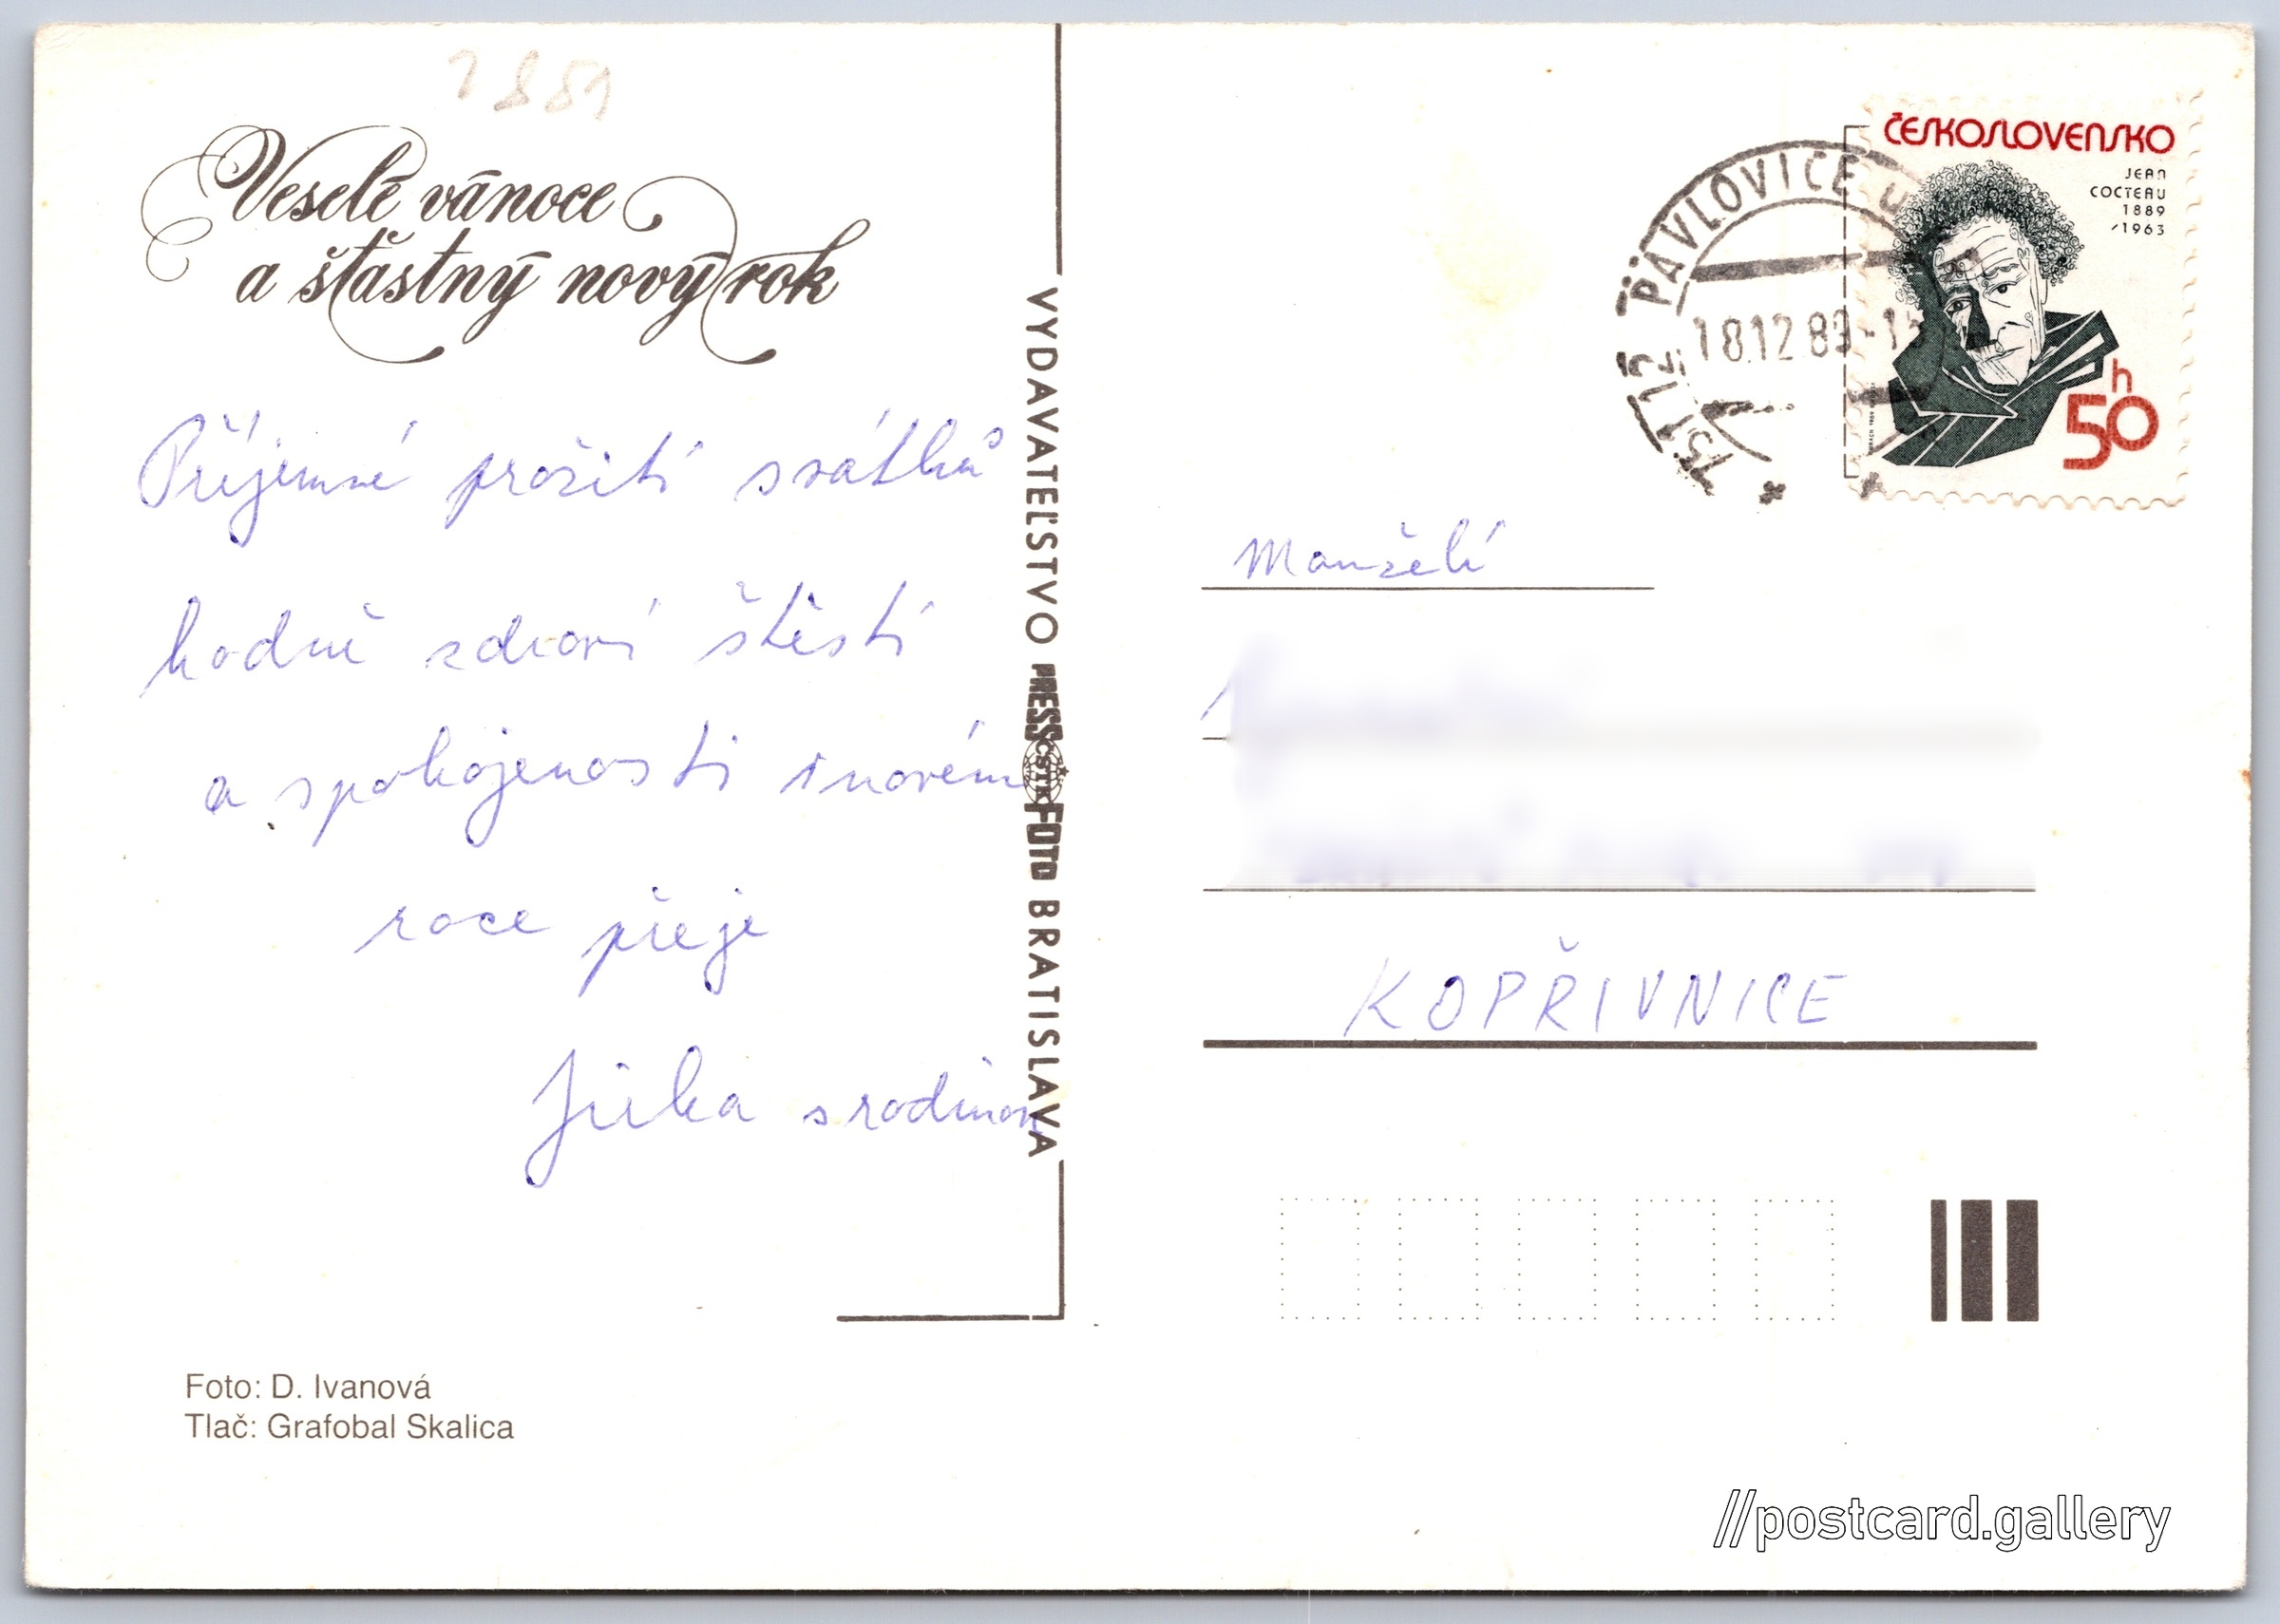 Veselé vánoce
a šťastný nový rok
Příjemné prožití svátků
hodně zdraví štěstí
a spokojenosti v novém
roce přeje
Jirka s rodinou
Foto: D. Ivanová
Tlač: Grafobal Skalica
VYDAVATEĽSTVO PRESSFOTO BRATISLAVA
ČSTK
PAVLOVICE U
18.12.89
ČESKOSLOVENSKO
JEAN
COCTEAU
1889
/1963
50 h
Manželé
KOPŘIVNICE
//postcard.gallery